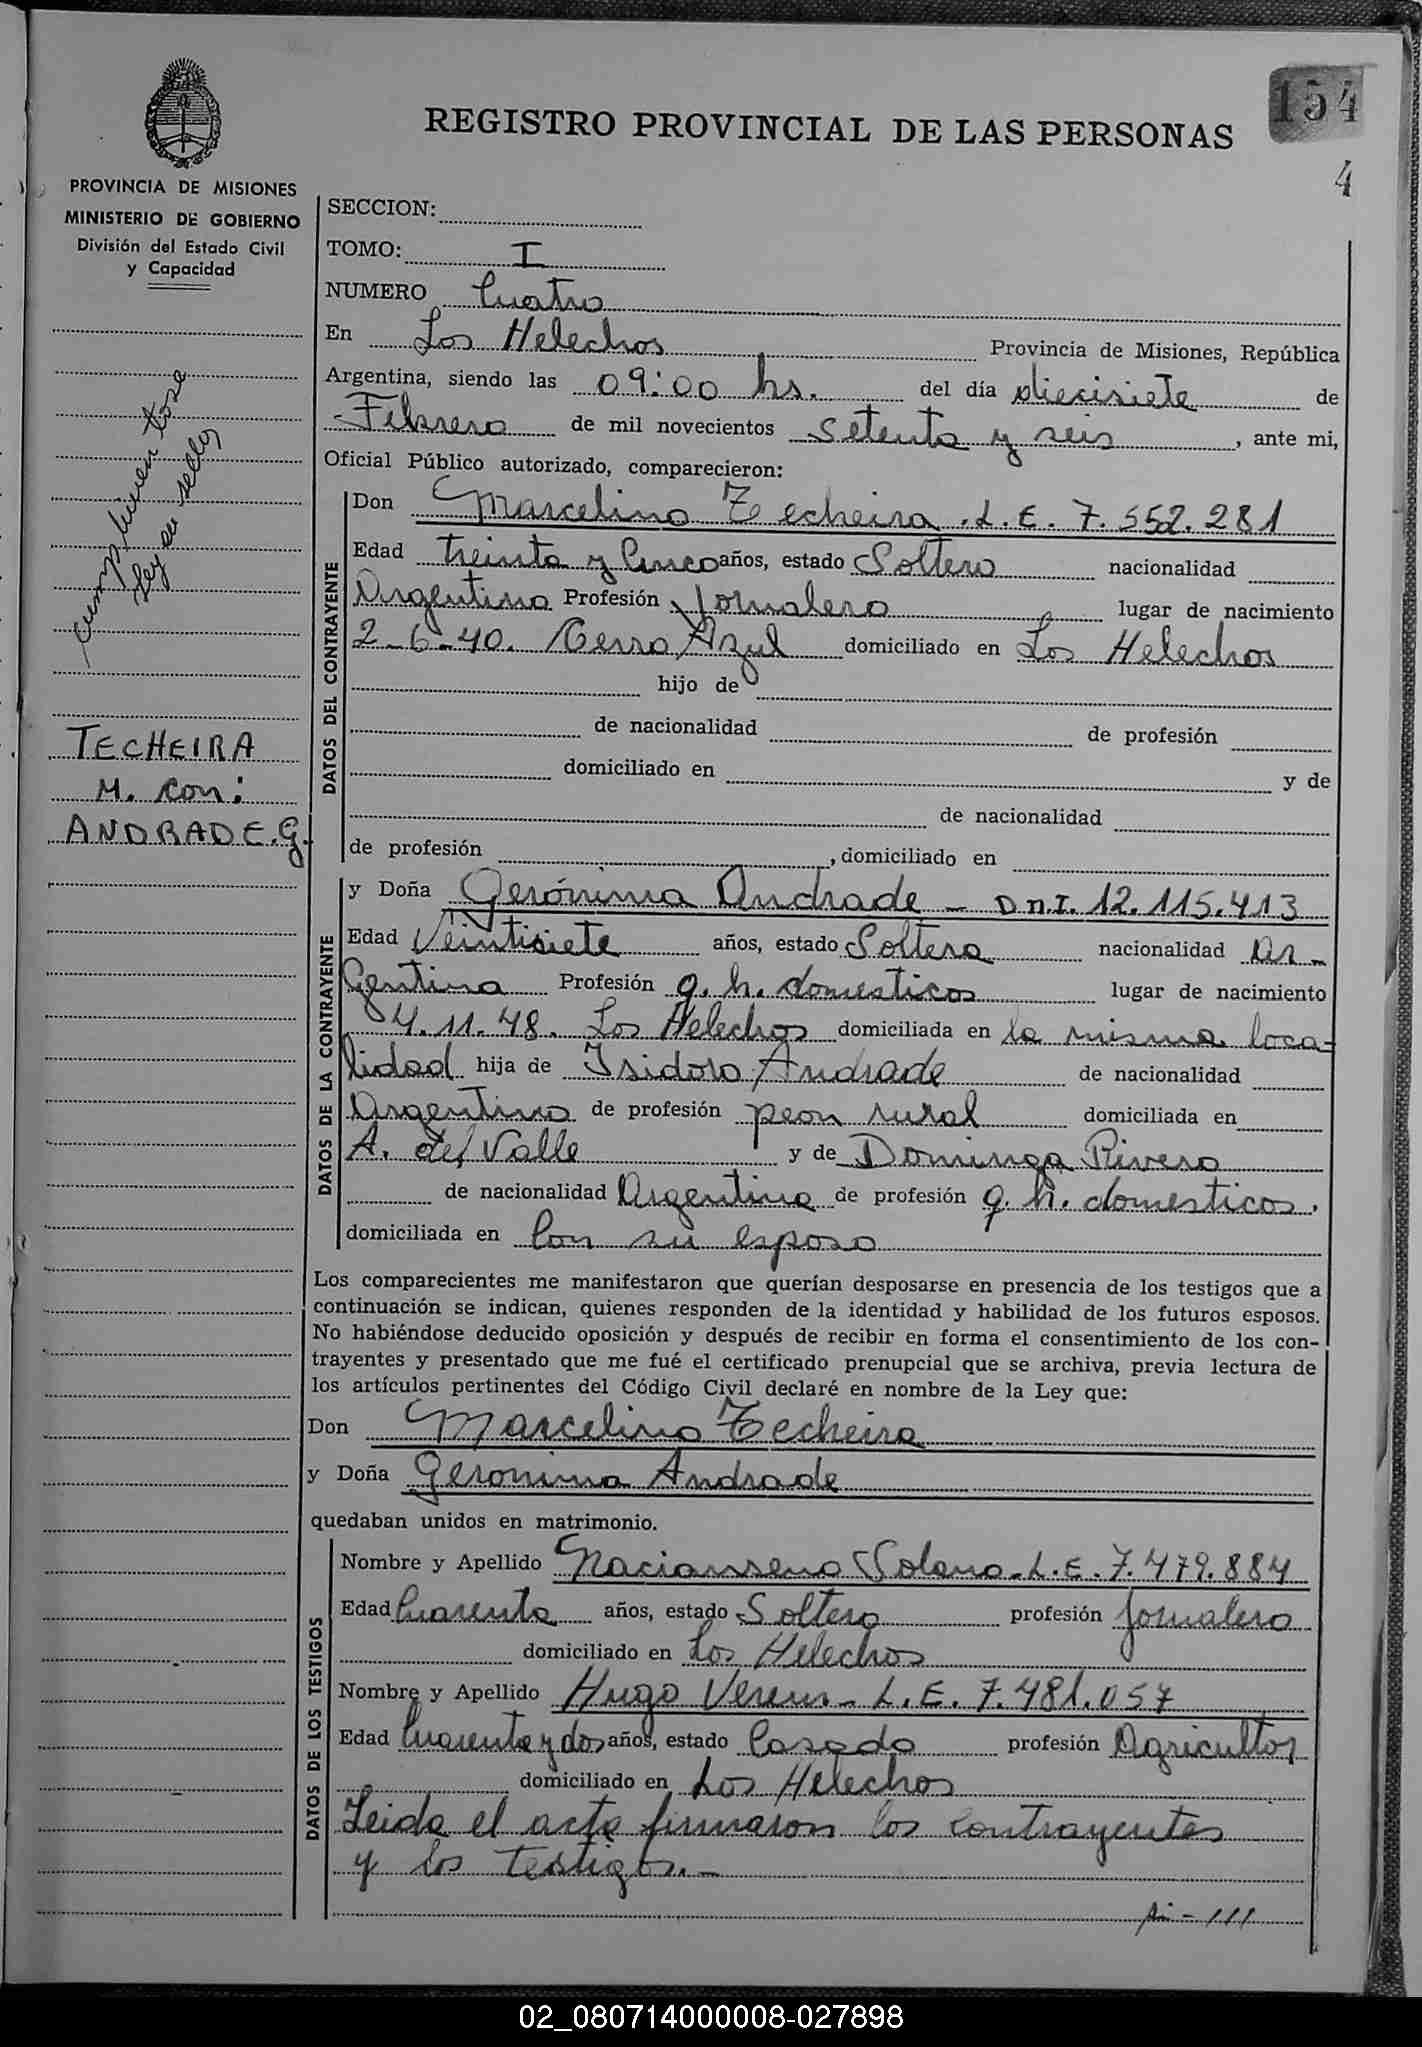 154
4
REGISTRO PROVINCIAL DE LAS PERSONAS
PROVINCIA DE MISIONES
MINISTERIO DE GOBIERNO
División del Estado Civil
y Capacidad
cumplimentose
ley de sellos
TECHEIRA
M. con:
ANDRADE.G.
SECCION:
TOMO: I
NUMERO Cuatro
En Los Helechos Provincia de Misiones, República
Argentina, siendo las 09:00 hs. del día diecisiete de
Febrero de mil novecientos setenta y seis, ante mi,
Oficial Público autorizado, comparecieron:
DATOS DEL CONTRAYENTE
Don Marcelino Techeira. L.E. 7.552.281
Edad treinta y Cinco años, estado Soltero nacionalidad
Argentina Profesión Jornalero lugar de nacimiento
2-6-40. Cerro Azul domiciliado en Los Helechos
hijo de
de nacionalidad de profesión
domiciliado en y de
de nacionalidad
de profesión , domiciliado en
DATOS DE LA CONTRAYENTE
y Doña Gerónima Andrade - D.N.I. 12.115.413
Edad Veintisiete años, estado Soltera nacionalidad Ar-
gentina Profesión q. h. domesticos lugar de nacimiento
4.11.48. Los Helechos domiciliada en la misma loca-
lidad hija de Isidoro Andrade de nacionalidad
Argentino de profesión peon rural domiciliada en
A. del Valle y de Dominga Rivero
de nacionalidad Argentina de profesión q. h. domesticos.
domiciliada en Con su esposo
Los comparecientes me manifestaron que querían desposarse en presencia de los testigos que a
continuación se indican, quienes responden de la identidad y habilidad de los futuros esposos.
No habiéndose deducido oposición y después de recibir en forma el consentimiento de los con-
trayentes y presentado que me fué el certificado prenupcial que se archiva, previa lectura de
los artículos pertinentes del Código Civil declaré en nombre de la Ley que:
Don Marcelino Techeira
y Doña Geronima Andrade
quedaban unidos en matrimonio.
DATOS DE LOS TESTIGOS
Nombre y Apellido Nacianseno Solano. L.E. 7.479.884
Edad Cuarenta años, estado Soltero profesión Jornalero
domiciliado en Los Helechos
Nombre y Apellido Hugo - L.E. 7.481.057
Edad Cuarenta y dos años, estado Casado profesión Agricultor
domiciliado en Los Helechos
Leida el acta firmaron los contrayentes
y los testigos.-
///
02_080714000008-027898